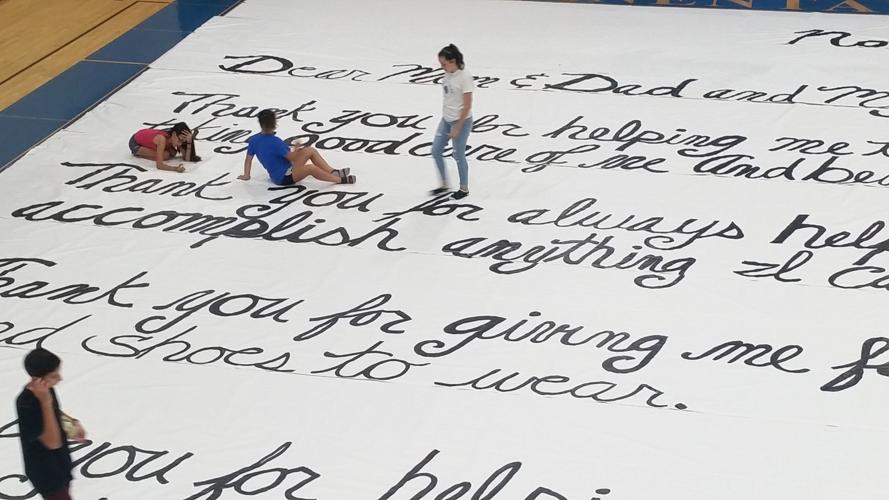 Dear Mom & Dad and my
Thank you for helping me
being Good care of me and
Thank you for always help
accomplish anything I Ca
Thank you for giving me f
shoes to wear.
you for help